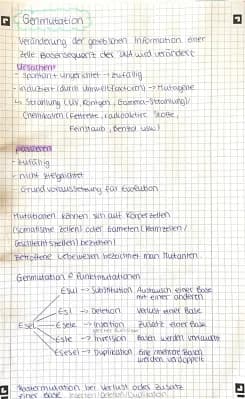 Genmutation
Veränderung der genetischen Information einer
Zelle Basensequenz der DNA wird verändert
Ursachen:
- spontan + ungerichtet → zufällig
- induziert (durch Umweltfaktoren) → Mutagene
↳ Strahlung (UV, Röntgen, Gamma-Strahlung) /
Chemikalien (Teerreste, radioaktive Stoffe,
Feinstaub, Benzol usw.)
passieren
- zufällig
- nicht zielgerichtet
- Grundvoraussetzung für Evolution
Mutationen können sich auf Körperzellen
(somatische Zellen) oder Gameten (Keimzellen /
Geschlechtszellen) beziehen)
Betroffene Lebewesen bezeichnet man Mutanten.
Genmutation = Punktmutationen
Esel
Esul → Substitution Austausch einer Base
mit einer anderen
Esl → Deletion Verlust einer Base
Esele → Insertion Zusatz einer Base
Esle → Inversion Basen werden vertauscht
Eselsel → Duplikation Eine mehrere Basen
werden verdoppelt
Rastermutation bei Verlust oder Zusatz
einer Base Insertion/Deletion/Duplikation